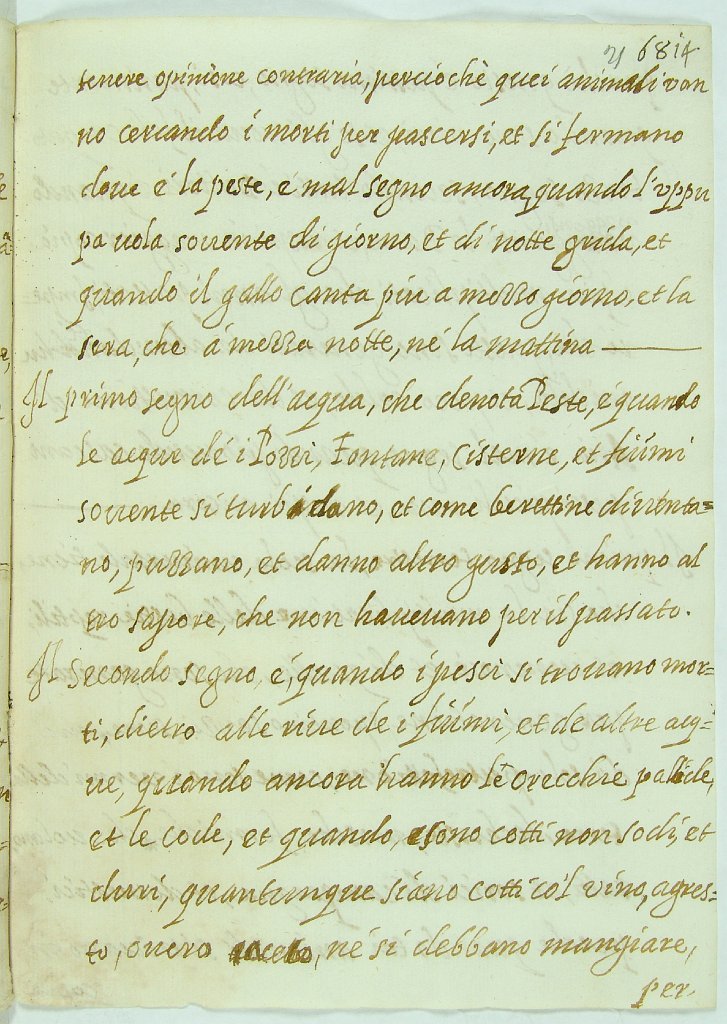 21 6814
tenere opinione contraria, perciochè quei animali van
no cercando i morti per pascersi, et si fermano
doue è la peste, e mal segno ancora, quando l'vppu
pa uola souente di giorno, et di notte grida, et
quando il gallo canta piu a mezzo giorno, et la
sera, che á mezza notte, né la mattina
Il primo segno dell'acqua, che denota Peste, é quando
le acque dé i Pozzi, Fontane, Cisterne, et fiumi
souente si turbidano, et come berettine diuenta=
no, puzzano, et danno altro gusto, et hanno al
tro sapore, che non haueuano per il passato.
Il Secondo segno é, quando i pesci si trouano mor=
ti, dietro alle riue de i fiumi, et de altre acq=
ue, quando ancora hanno le orecchie pallide,
et le code, et quando, sono cotti non sodi, et
duri, quantunque siano cotti co'l vino, agres=
to, ouero aceto, né si debbano mangiare,
per